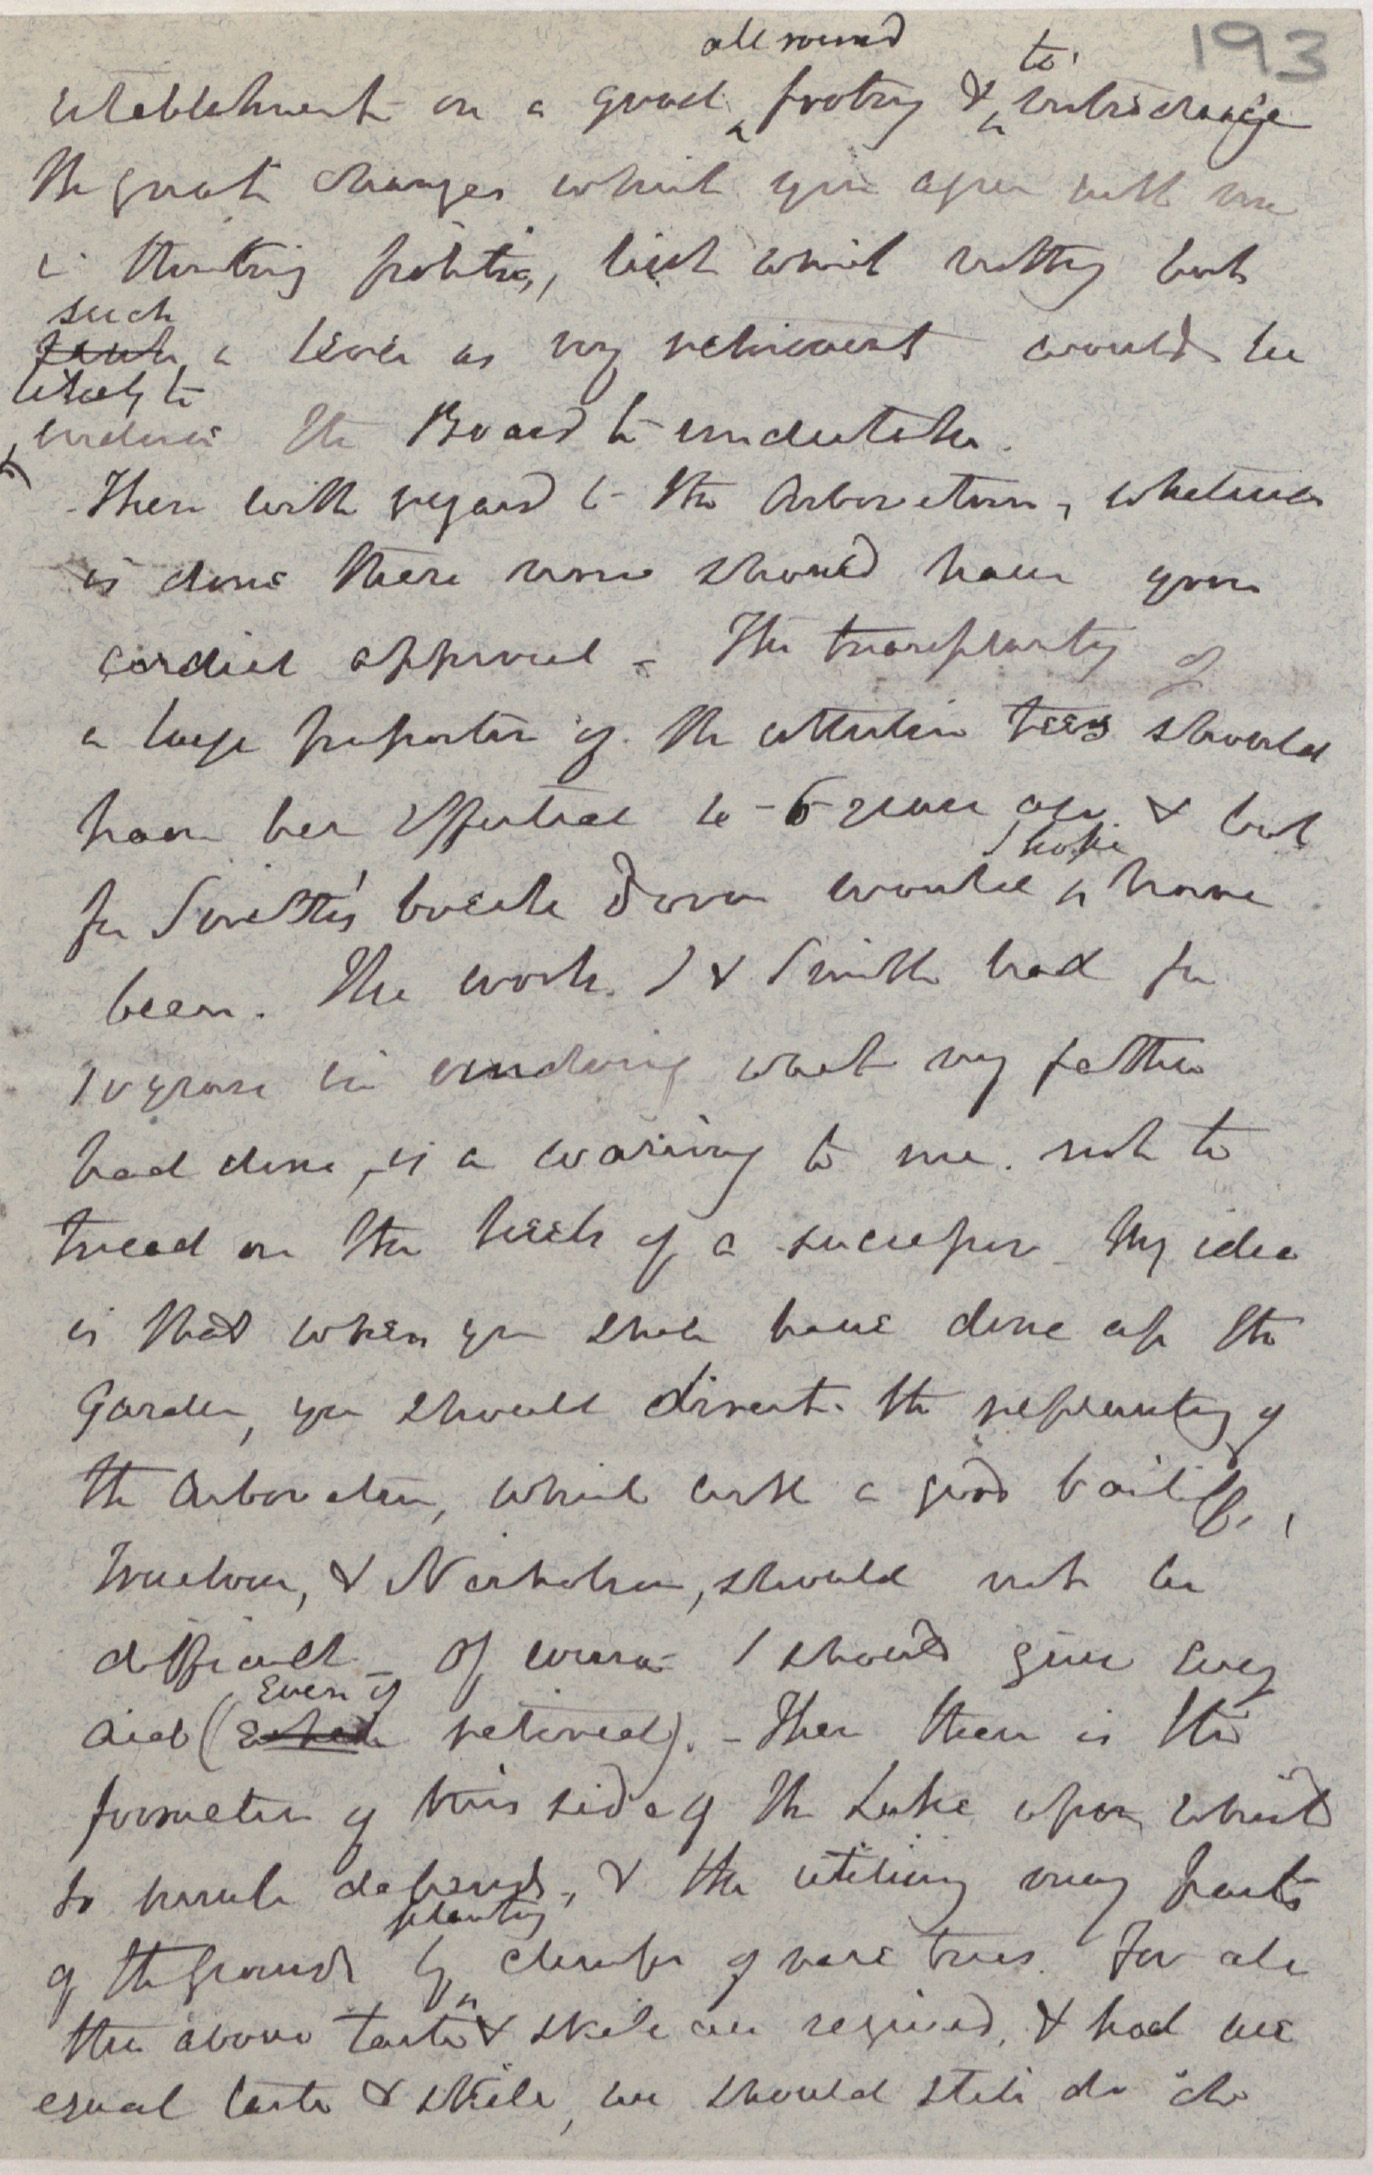 193
all round
to
establishment on a good footing & introduce
the great changes which you agree with me
in thinking but which nothing but
such
a lever as my retirement would be
likely to
induce the Board to undertake.
Then with regard to the Arboretum, whatever
is done there now should have your
cordial approval - The transplanting of
a large proportion of the trees should
have been effected 4-6 years ago & but
I hope
for Smith's break down would have
been. The work I & Smith had for
10 years in undoing what my father
had done, is a warning to me not to
tread on the heels of a successor - My idea
is that when you shall have done up the
Garden, you should direct the replanting of
the Arboretum, which with a good bailiff,
Truelove, & Nicholson, should not be
difficult - Of course I should give every
Even if
aid ( retired). - Then there is the
formation of this side of the Lake upon which
so much depends, & the utilising many parts
planting
of the grounds by clumps of rare trees. For all
the above taste & skill are required, & had we
equal taste & skill, we should still do